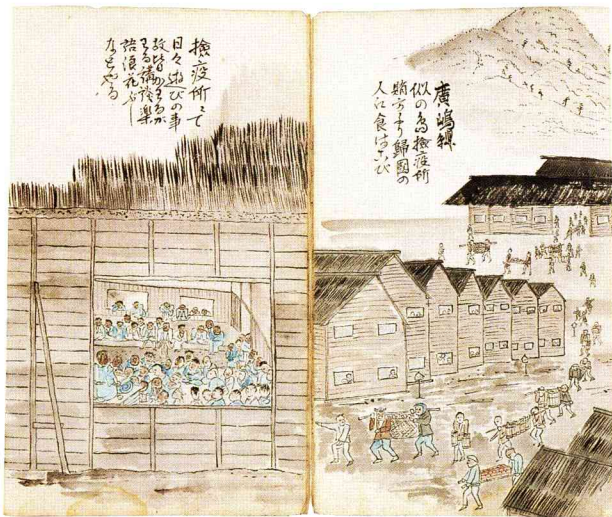 廣嶋縣
似の島檢疫所
賄方より歸國の
人江食はこび
檢疫所ニて
日々遊びの事
故皆
る講談樂
語浪花ぶし
などやる